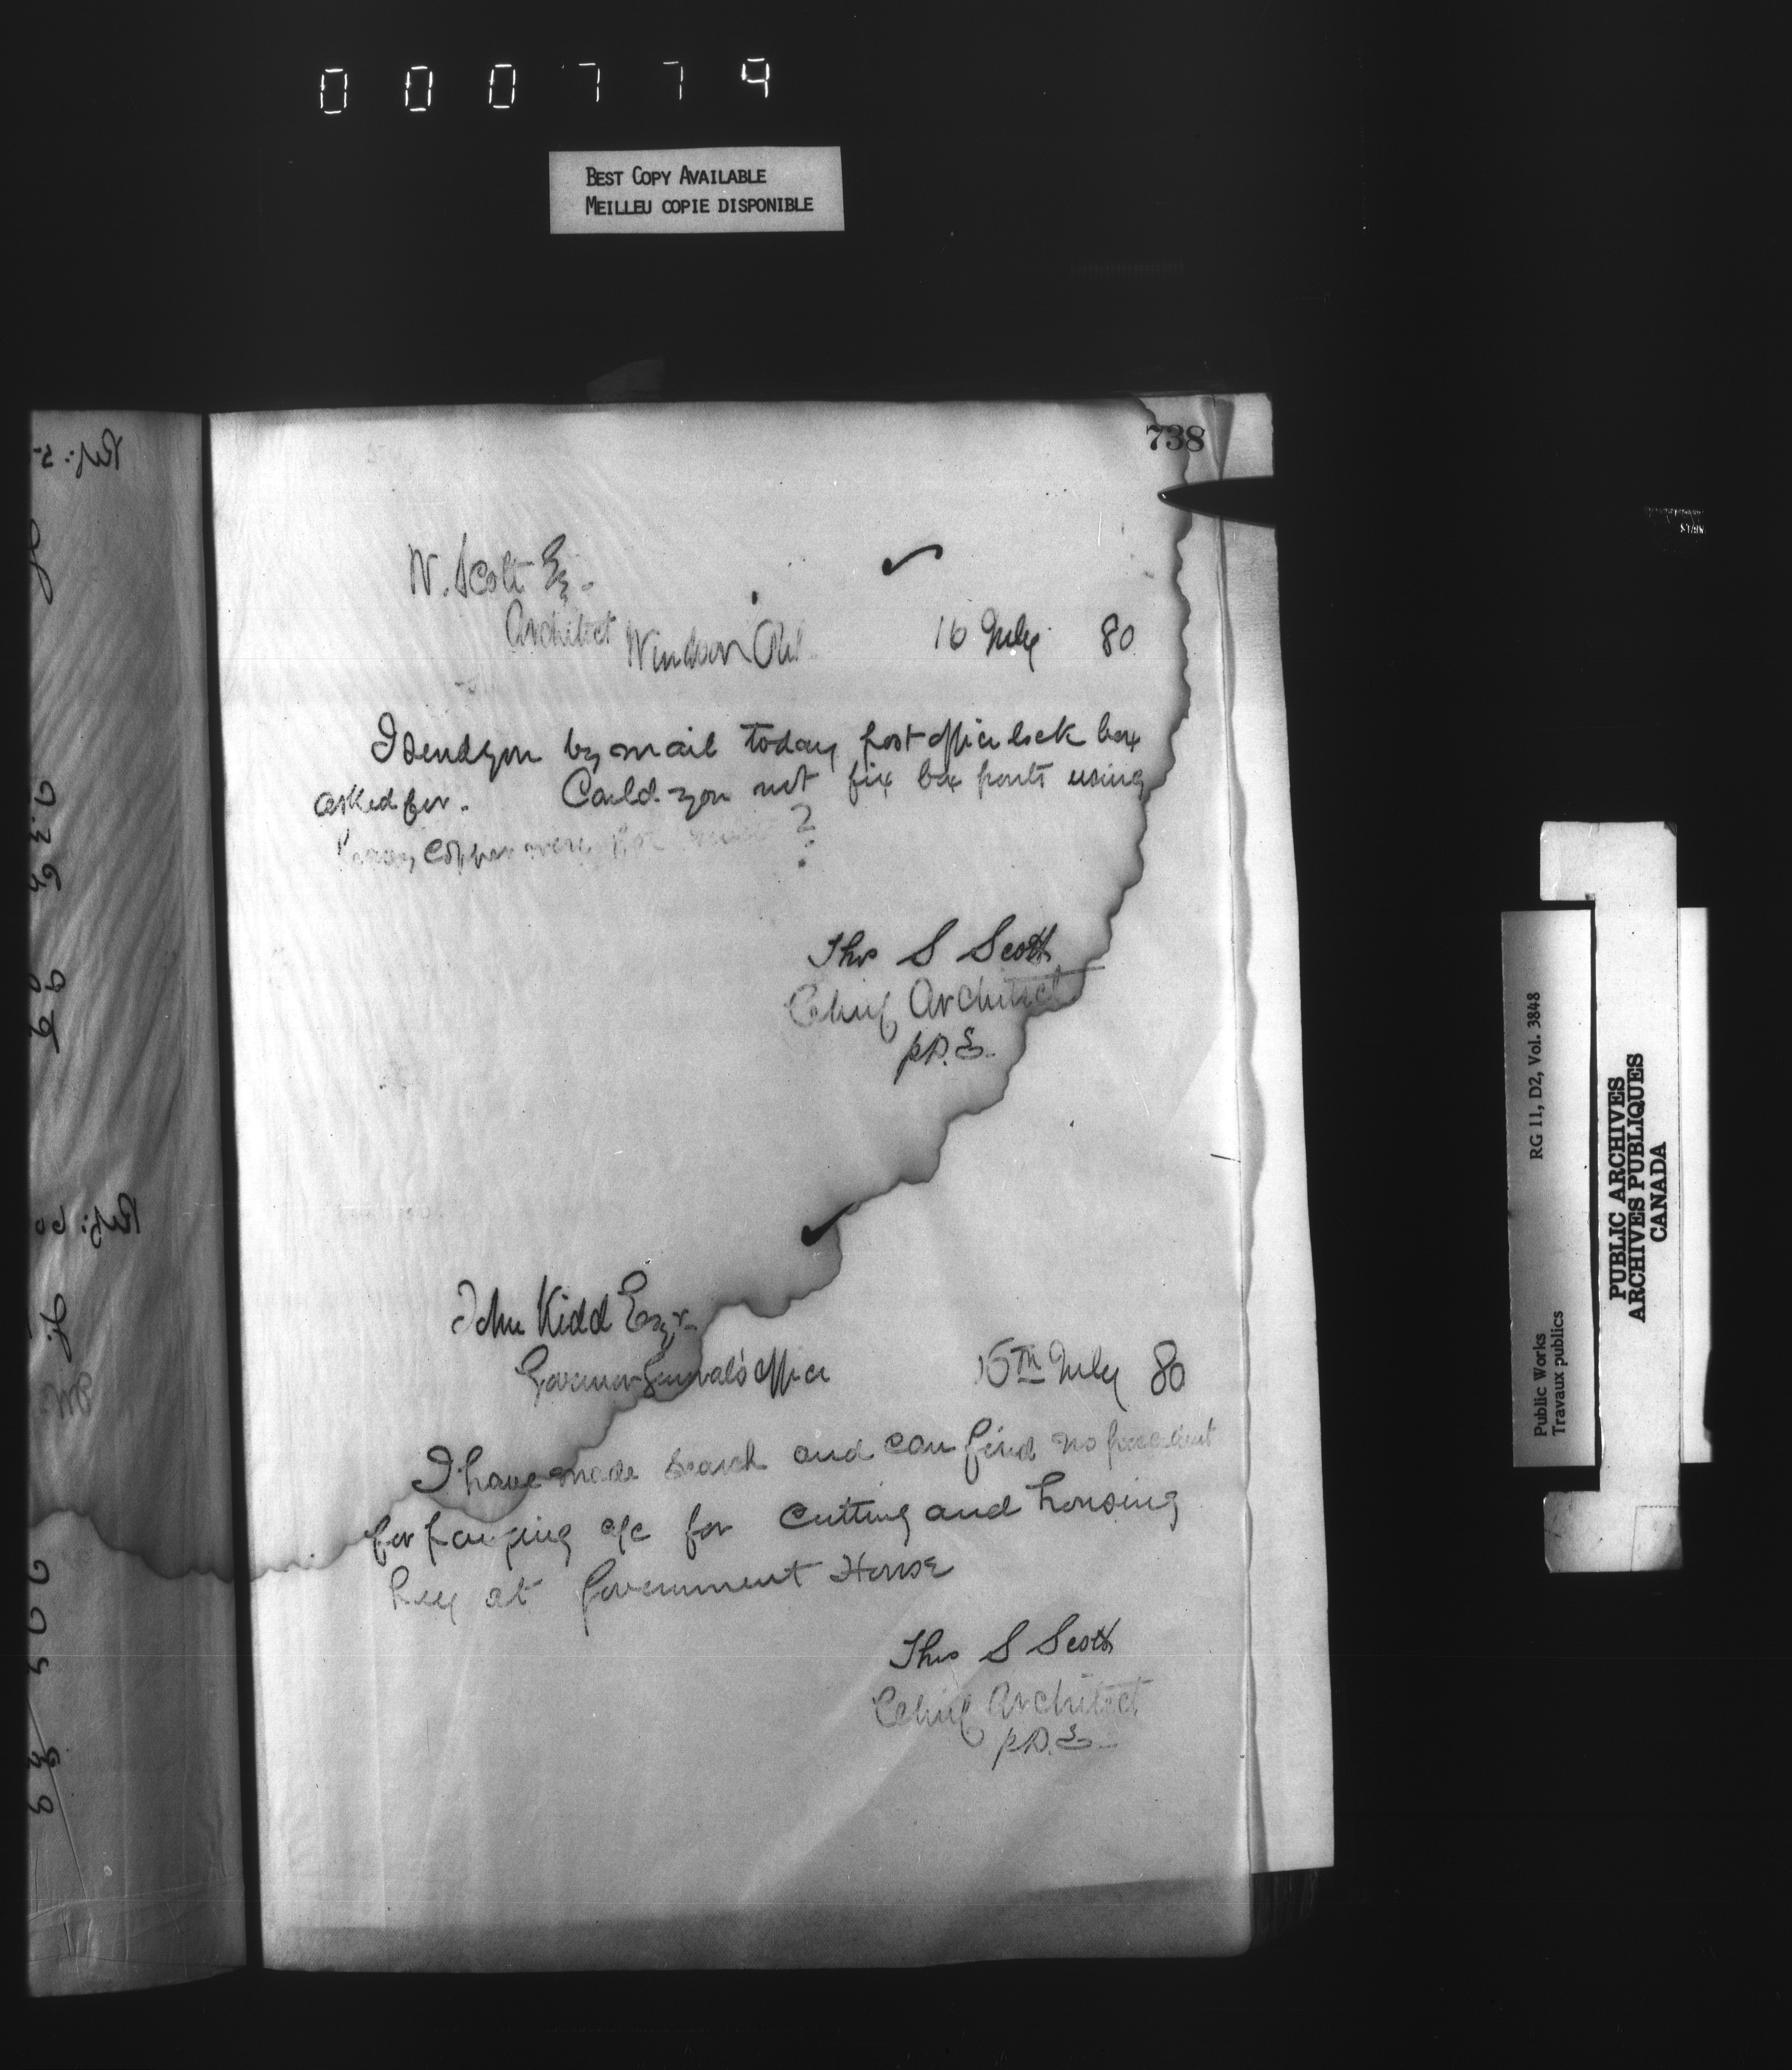 000779
BEST COPY AVAILABLE
MEILLEU COPIE DISPONIBLE
738
W. Scott Esq.
Architect
Windsor Ont
16 July 80
I send you by mail today post office lock box
asked for. Could you not fix box fronts using
copper ?
Thos S Scott
Chief Architect
p D. E.
John Kidd Esqr
Governor General's office
16th July 80
I have made search and can find no precedent
for paying a/c for cutting and housing
hay at Government House
Thos S Scott
Chief Architect
p D. E.
Public Works
Travaux publics
RG 11, D2, Vol. 3848
PUBLIC ARCHIVES
ARCHIVES PUBLIQUES
CANADA